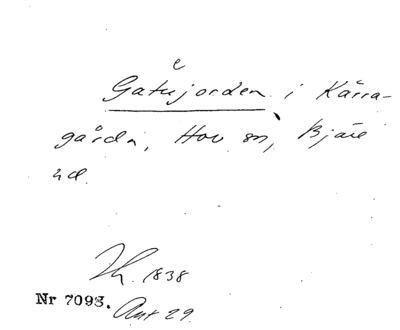 e
Gatujorden i Kärra-
gårda, Hov sn, Bjäre
hd.
Th. 1838
Nr 7093. Ant 29.